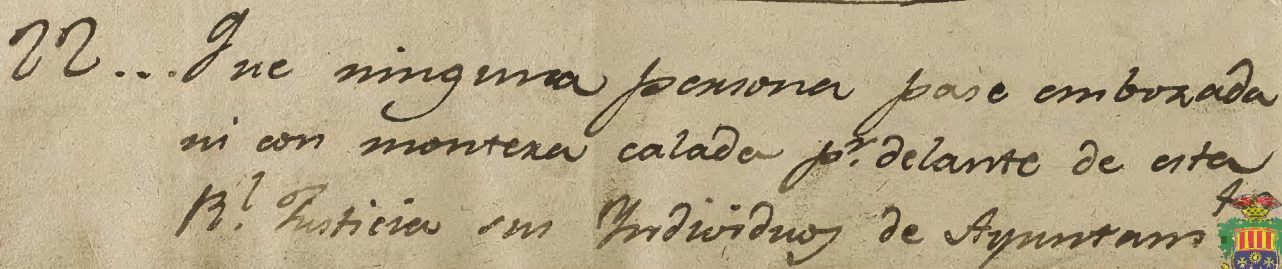 22... Que ninguna persona pase embozada
ni con montera calada pr. delante de esta
Rl. Justicia sus Individuos de Ayuntam